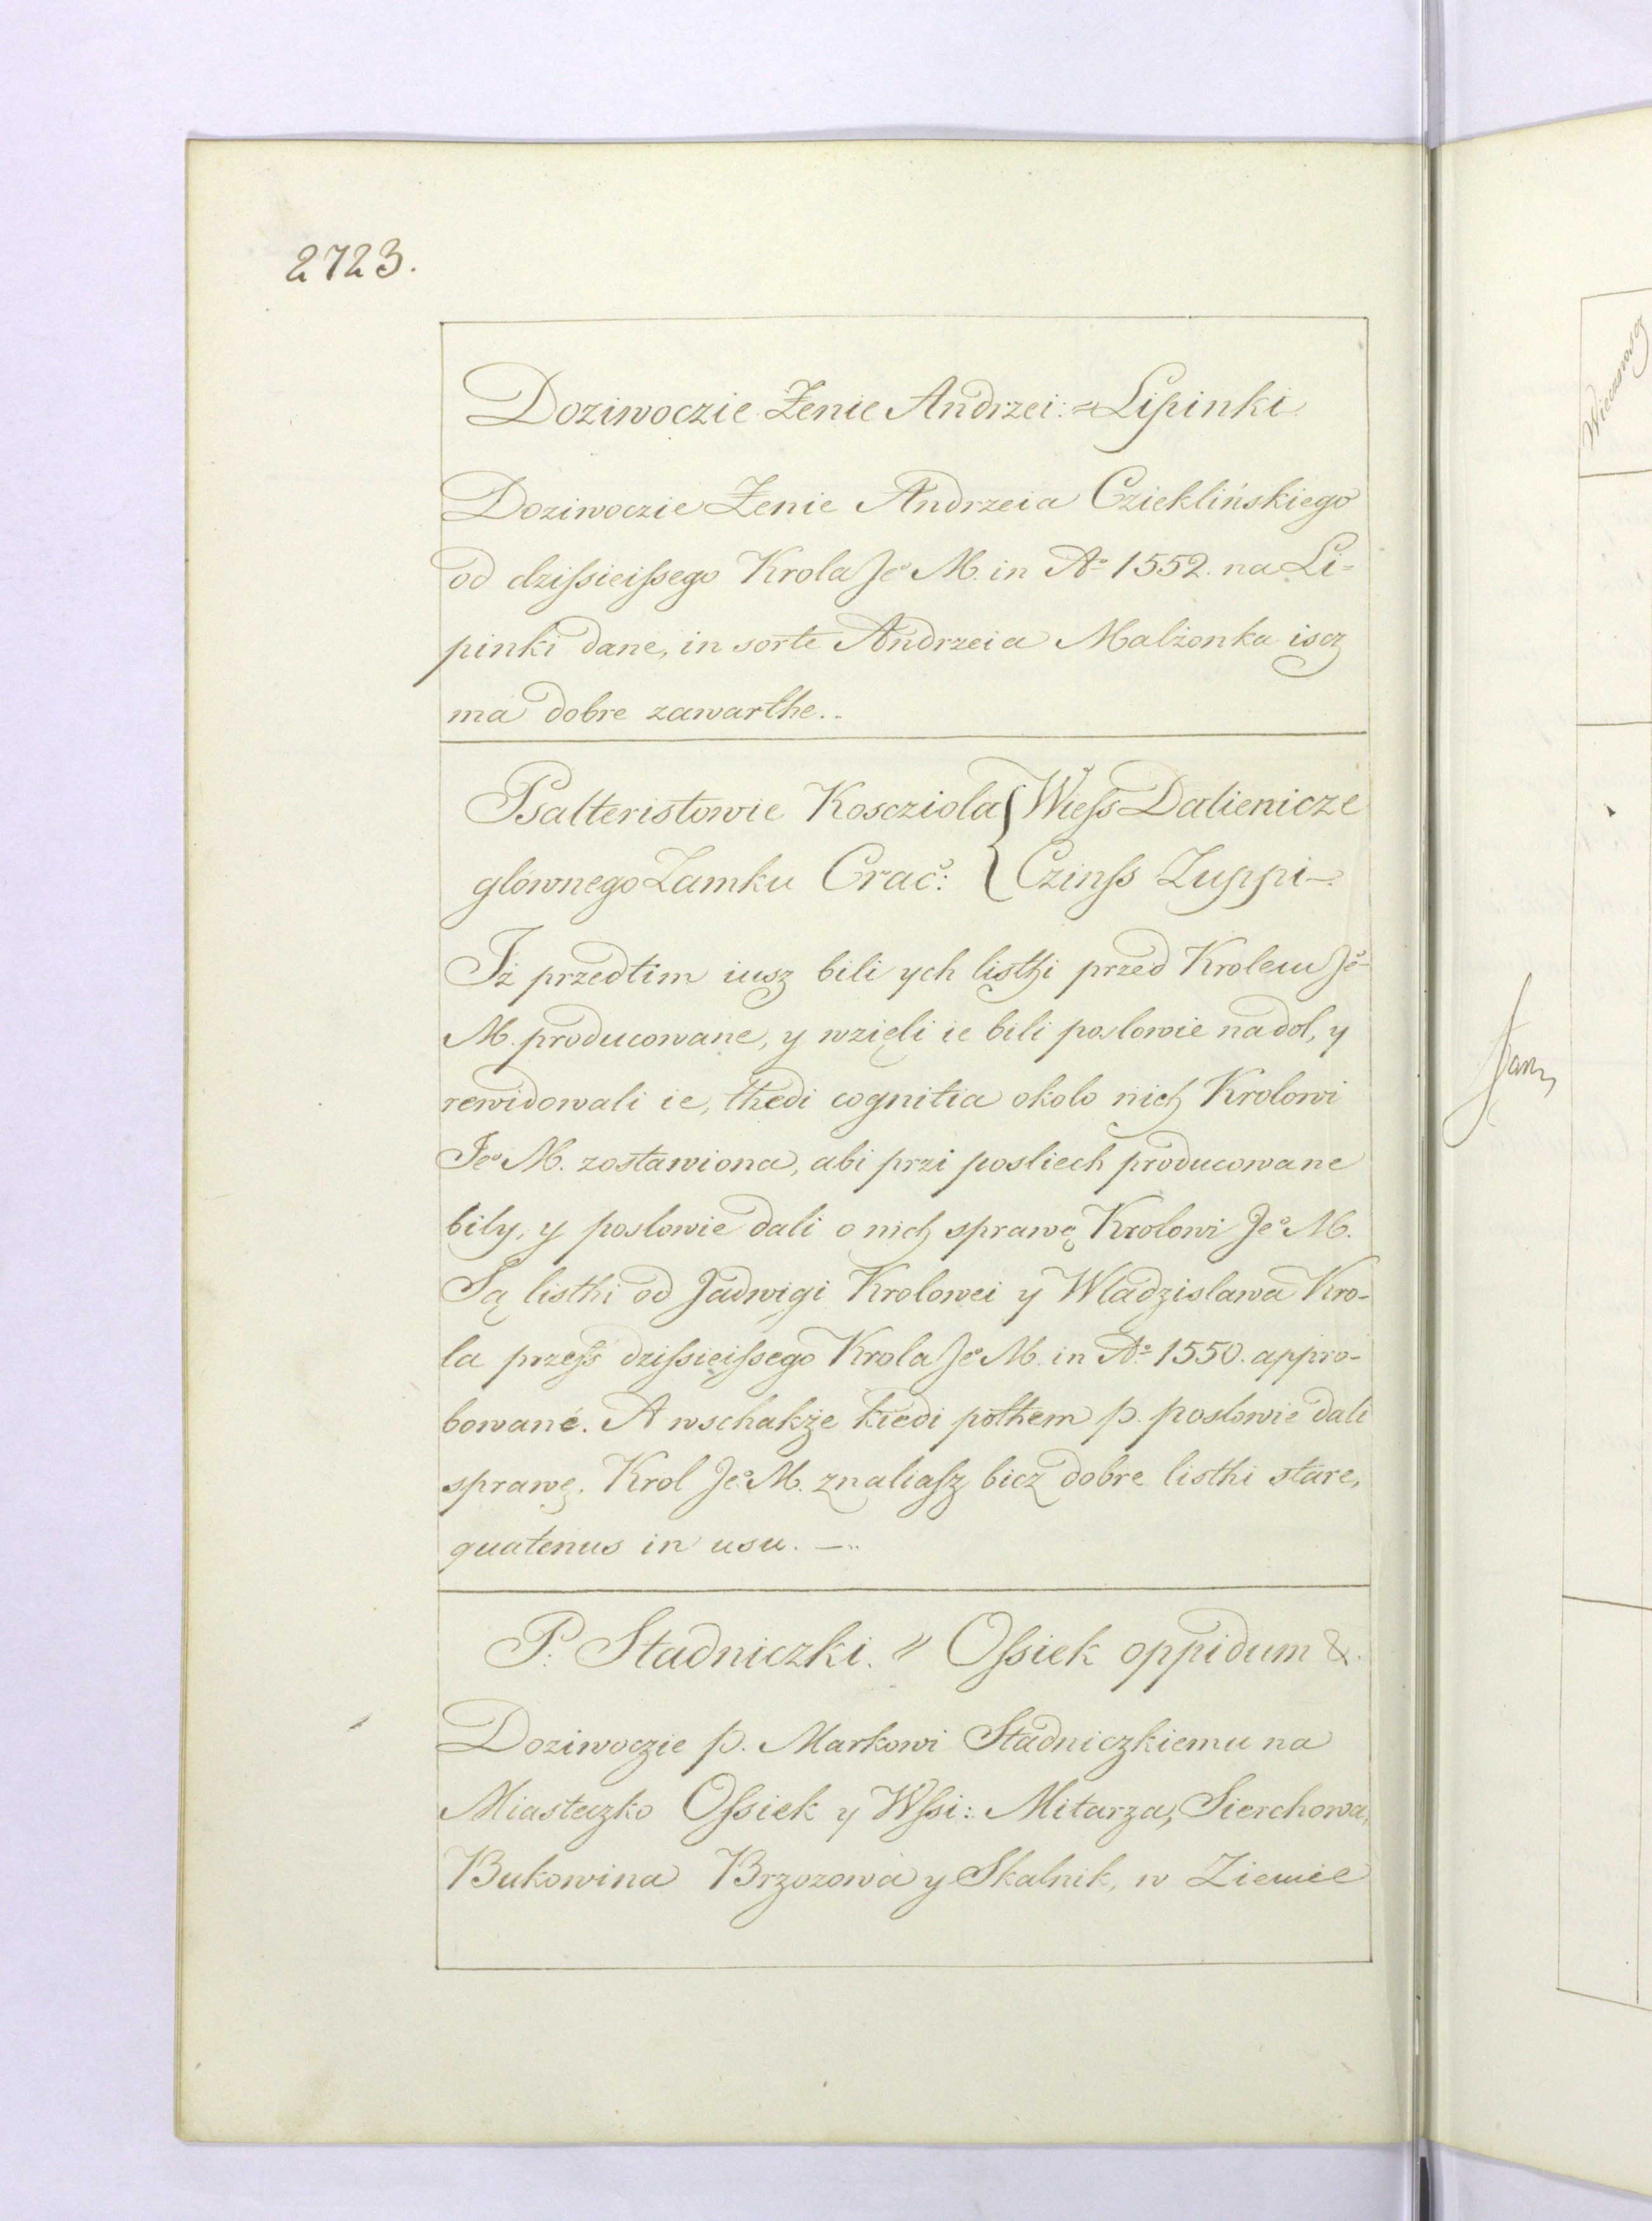 2723.
Doziwoczie Żenie Andrzei: = Lipinki
Doziwoczie Żenie Andrzeia Czieklińskiego
od dzissieissego Krola Jeo M. in Ao 1552. na Li=
pinki dane, in sorte Andrzeia Malżonka iscz
ma dobre zawarthe..
Psalteristowie Koscziola { Wiess Dalienicze
glównego Zamku Crac: { Czinss Zuppi—
Iż przedtim iusz bili ych listhi przed Krolem Jeo
M. producowane, y wzięli ie bili poslowie na dol, y
rewidowali ie, thedi cognitia okolo nich Krolowi
Jeo M. zostawiona, abi przi posliech producowane
bily, y poslowie dali o nich sprawę Krolowi Jeo M.
Są listhi od Jadwigi Krolowei y Wladzislawa Kro-
la przess dzissieissego Krola Jeo M. in Ao 1550. appro-
bowané. A wschakże kiedi pothem p. poslowie dali
sprawę. Krol Jeo M. znaliasz bicz dobre listhi stare,
quatenus in usu. —..
P. Stadniczki. // Ossiek oppidum &.
Doziwoczie p. Markowi Stadniczkiemu na
Miasteczko Ossiek y Wssi: Mitarza, Sierchowa,
Bukowina Brzozowa y Skalnik, w Ziemie